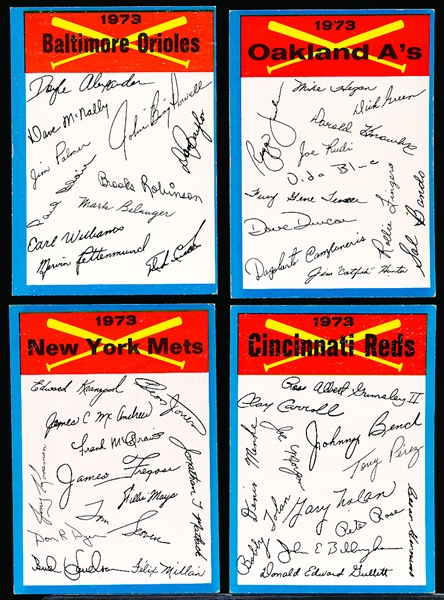 1973
Baltimore Orioles
Doyle Alexander
Dave McNally
John "Boog" Powell
Jim Palmer
Don Baylor
Brooks Robinson
Mark Belanger
Earl Williams
Mervin Rettenmund
1973
Oakland A's
Mike Hegan
Dick Green
Darold Knowles
Joe Rudi
Vida Blue
Fury Gene Tenace
Rollie Fingers
Sal Bando
Dave Duncan
Dagoberto Campaneris
Jim "Catfish" Hunter
1973
New York Mets
Edward Kranepool
Cleon Jones
James C McAndrew
Frank McGraw
Jonathan T Matlack
James Fregosi
Jerry Koosman
Willie Mays
Tom Seaver
Felix Millan
1973
Cincinnati Reds
Ross Albert Grimsley II
Clay Carroll
Johnny Bench
Denis Menke
Joe Morgan
Tony Perez
Bobby Tolan
Gary Nolan
Pete Rose
John E Billingham
Donald Edward Gullett